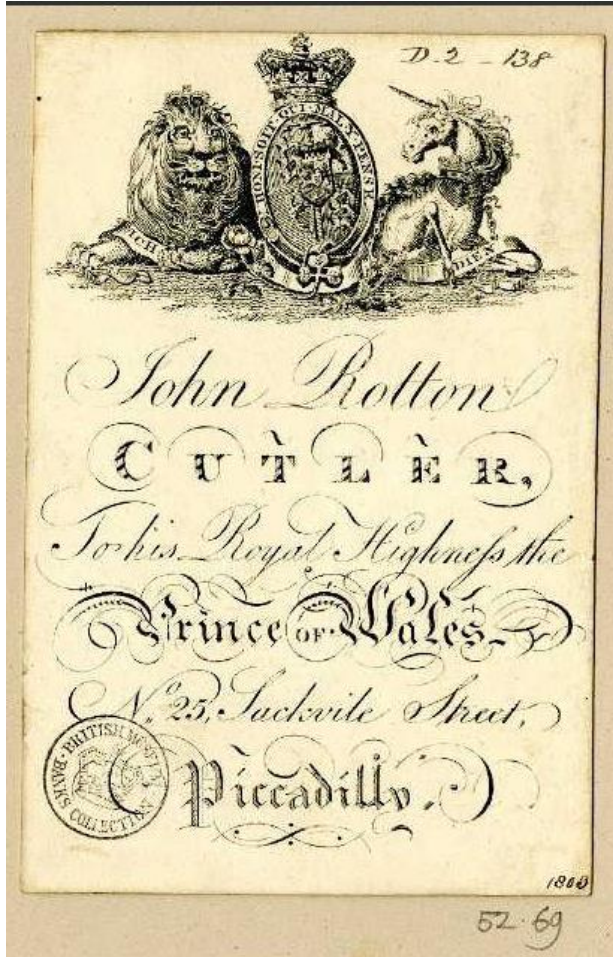 D.2 - 138
HONI SOIT QUI MAL Y PENSE
ICH
DIEN
John Rotton
CUTLER,
To his Royal Highneſs the
Prince OF Wales
No. 25, Sackvile Street,
Piccadilly.
BRITISH MUSEUM
BANKS COLLECTION
1803
52.69